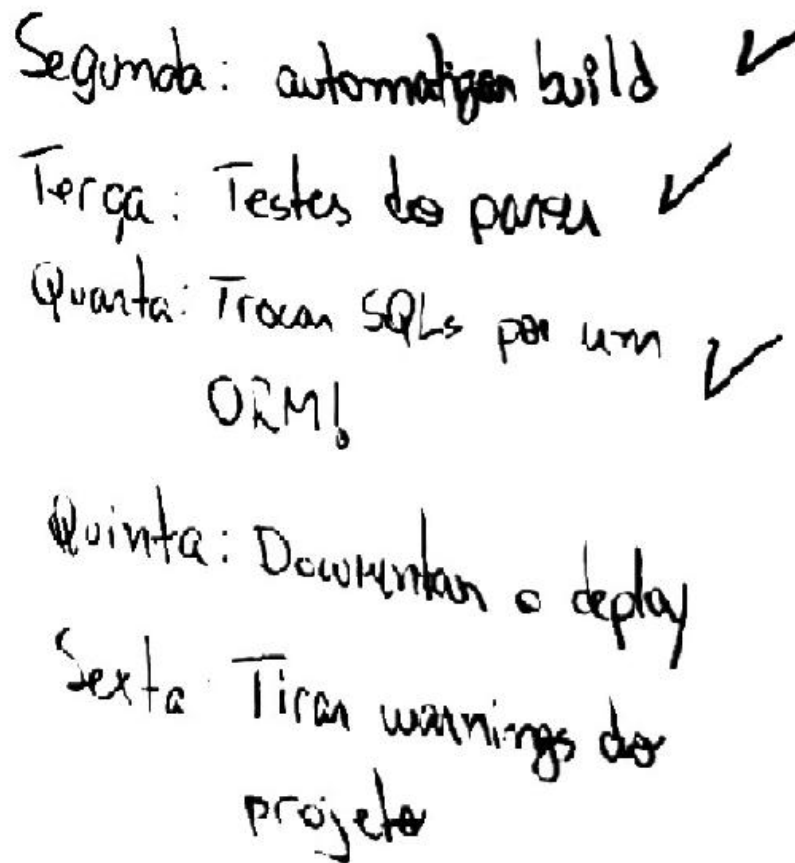 Segunda: automatizar build ✓
Terça: Testes do parser ✓
Quarta: Trocar SQLs por um ✓
ORM!
Quinta: Documentar o deploy
Sexta: Tirar warnings do
projeto